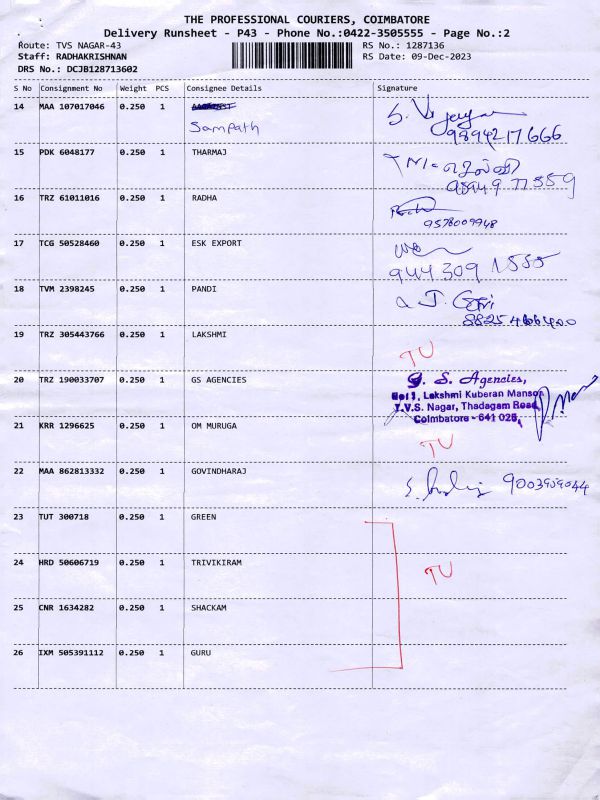 THE PROFESSIONAL COURIERS, COIMBATORE
Delivery Runsheet - P43 - Phone No.:0422-3505555 - Page No.:2
Route: TVS NAGAR-43 RS No.: 1287136
Staff: RADHAKRISHNAN RS Date: 09-Dec-2023
DRS No.: DCJB128713602
S No Consignment No Weight PCS Consignee Details Signature
14 MAA 107017046 0.250 1
Sampath
9894217666
15 PDK 6048177 0.250 1 THARMAJ
16 TRZ 61011016 0.250 1 RADHA
9578009948
17 TCG 50528460 0.250 1 ESK EXPORT
944 309 1555
18 TVM 2398245 0.250 1 PANDI
19 TRZ 305443766 0.250 1 LAKSHMI
TU
20 TRZ 190033707 0.250 1 GS AGENCIES G. S. Agencies,
No: 1, Lakshmi Kuberan Mansor
T.V.S. Nagar, Thadagam Road,
Coimbatore - 641 025,
21 KRR 1296625 0.250 1 OM MURUGA
TU
22 MAA 862813332 0.250 1 GOVINDHARAJ
23 TUT 300718 0.250 1 GREEN
24 HRD 50606719 0.250 1 TRIVIKIRAM TU
25 CNR 1634282 0.250 1 SHACKAM
26 IXM 505391112 0.250 1 GURU